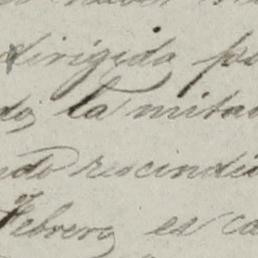 dirigida po
do, la mitad
ndo rescindi
Febrero, es ca